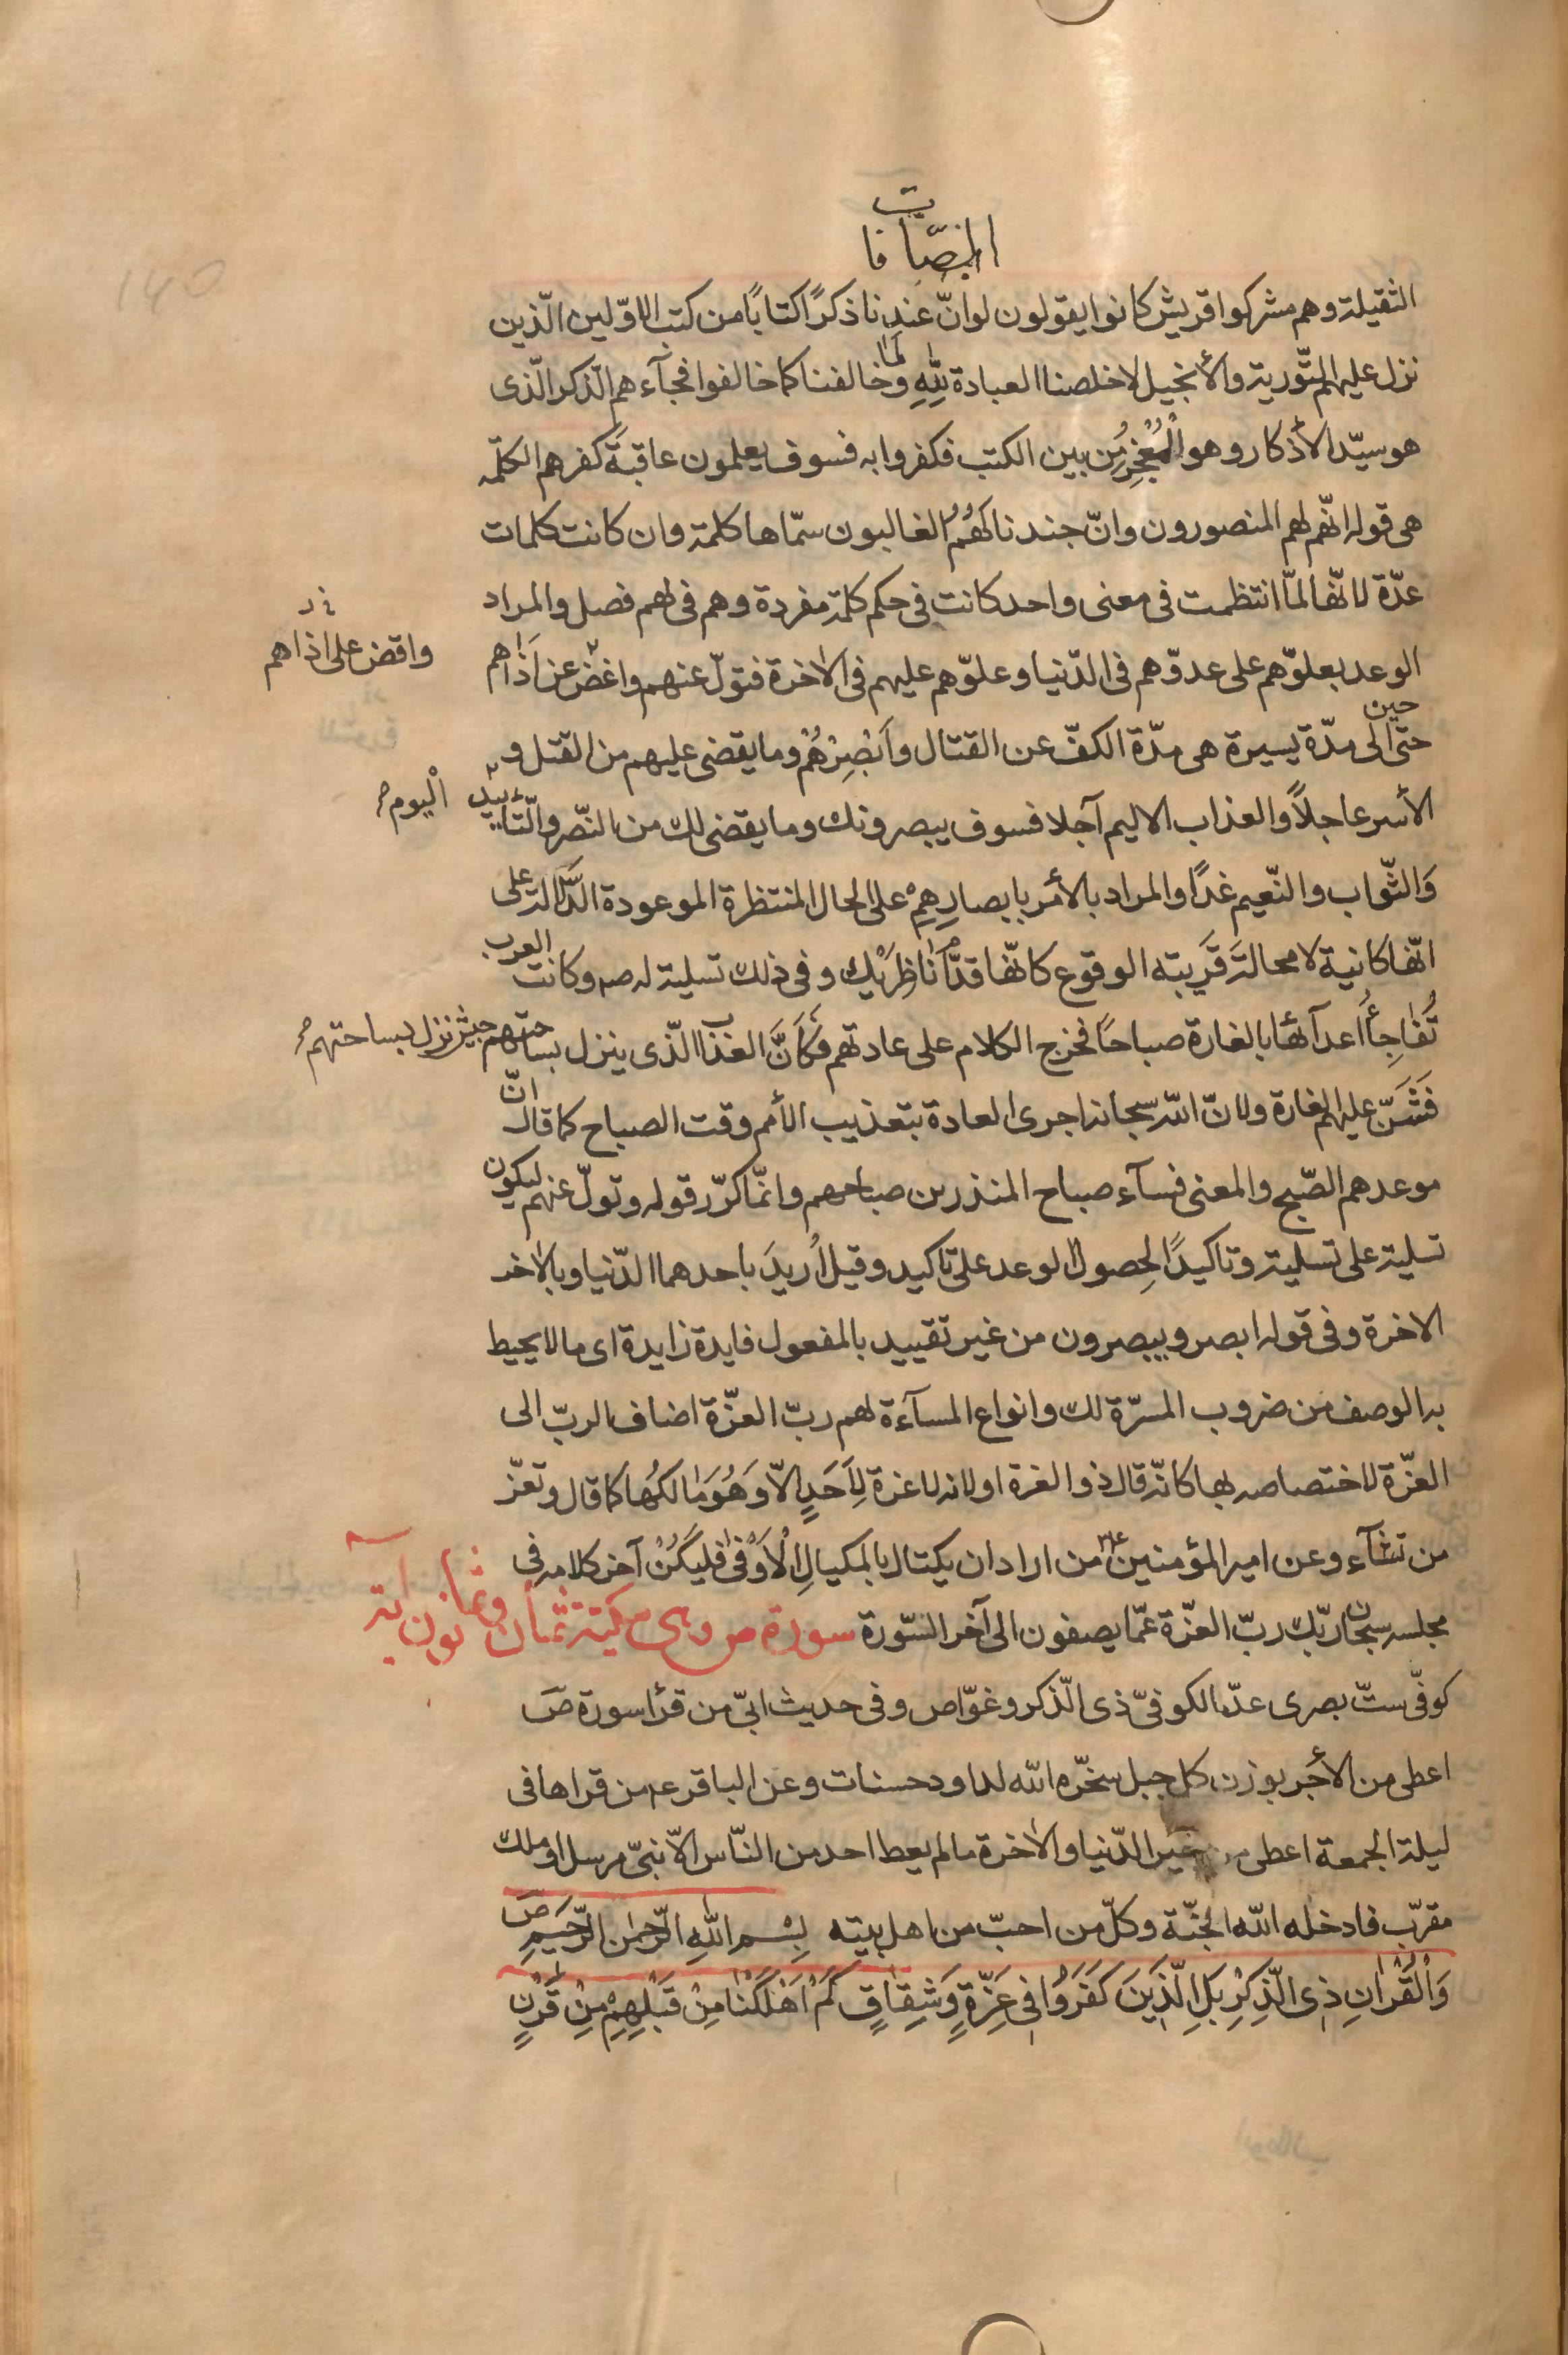 الصّافات
الثقيلة وهم مشركوا قريش كانوا يقولون لو انّ عندنا ذكرًا كتابًا من كتب الاوّلين الّذين
نزل عليهم التّورية والأنجيل لاخلصنا العبادة لِلّٰهِ ولَمٰا خالفنا كما خالفوا فجآءهم الّذكر الّذى
هو سيّد الأذكار وهو الْمُعْجِزُ من بين الكتب فكفروا به فسوف يعلمون عاقبةَ كفرهم الكلمة
هى قوله انّهم لهم المنصورون وانّ جندنا لَهُمُ الغالبون سمّاها كلمة وان كانت كلمات
عدّة لانّها لمّا انتظمت فى معنى واحد كانت فى حكم كلمة مفردة وهم فى لهم فصل والمراد
الوعد بعلوّهم على عدوّهم فى الدّنيا وعلوّهم عليهم فى الاٰخرة فتولّ عنهم واغض عن اذٰاهم
واقض على اذاهم
حتى حين الى مدّة يسيرة هى مدّة الكفّ عن القتال وَاَبْصِرْهُمْ وما يقضى عليهم من القتل و
الأسر عاجلاً والعذاب الاليم آجلا فسوف يبصرونك وما يقضى لك من النّصر والتّأييد اليوم
وَالثّواب والنّعيم غدًا والمراد بالأمر بابصارِهِمْ على الحال المنتظرة الموعودة الدّلالة على
انّها كانية لا محالة قَرِيبته الوقوع كانّها قدّام نٰاظِرَيْك وفى ذلك تسلية له صم وكانت العرب
تُفٰاجِأُ اعدآئها بالغارة صباحًا فخرج الكلام على عادتهم فَكَاَنَّ العذاب الّذى ينزل بساحتهم جيش نزل بساحتهم
فَشَنّ عليهم الغارة ولانّ اللّه سبحانه اجرى العادة بتعذيب الأمم وقت الصباح كما قال انّ
موعدهم الصّبح والمعنى فسآء صباح المنذرين صباحهم وانّما كرّر قوله وتولّ عنهم ليكون
تسلية على تسلية وتاكيدًا لِحصول الوعد على تاكيد وقيل اُريدَ باحدهما الدّنيا وبالاٰخر
الاخرة وفى قوله ابصر ويبصرون من غير تقييد بالمفعول فايدة زايدة اى ما لا يحيط
به الوصف من ضروب المسرّة لك وانواع المسآءة لهم ربّ العزّة اضاف الربّ الى
العزّة لاختصاصه بها كانّه قال ذو العزة او لانه لا عزة لِاَحَدٍ الّا وَهُوَ مٰالكهُا كما قال وتعزّ
من تشآء وعن امير المؤمنين ع من اراد ان يكتال بالمكيالِ الْاَوْفىٰ فليكُنْ آخر كلامه فى
مجلسه سبحان ربّك ربّ العزّة عمّا يصفون الى آخر السّورة سورة ص وهى مكية ثمان وثمانون اية
كوفّى ستّ بصرى عدّ الكوفىّ ذى الّذكر وغوّاص وفى حديث ابىّ من قرٔا سورة صٓ
اعطى من الأجر بوزن كل جبل سخّره الله لداود حسنات وعن الباقر ع من قراها فى
ليلة الجمعة اعطى من خير الدّنيا والاٰخرة ما لم يعط احد من النّاس الّا نبىّ مرسل او ملك
مقرّب فادخله الله الجنّة وكلّ من احبّ من اهل بيته بِسْمِ اللّٰهِ الرَّحْمٰنِ الرَّحيمِ صٓ
وَالْقُرْاٰنِ ذِى الذِّكْرِ بَلِ الَّذينَ كَفَرُوا فى عِزَّةٍ وَشِقٰاقٍ كَمْ اَهْلَكْنٰا مِنْ قَبْلِهِمْ مِنْ قَرْنٍ